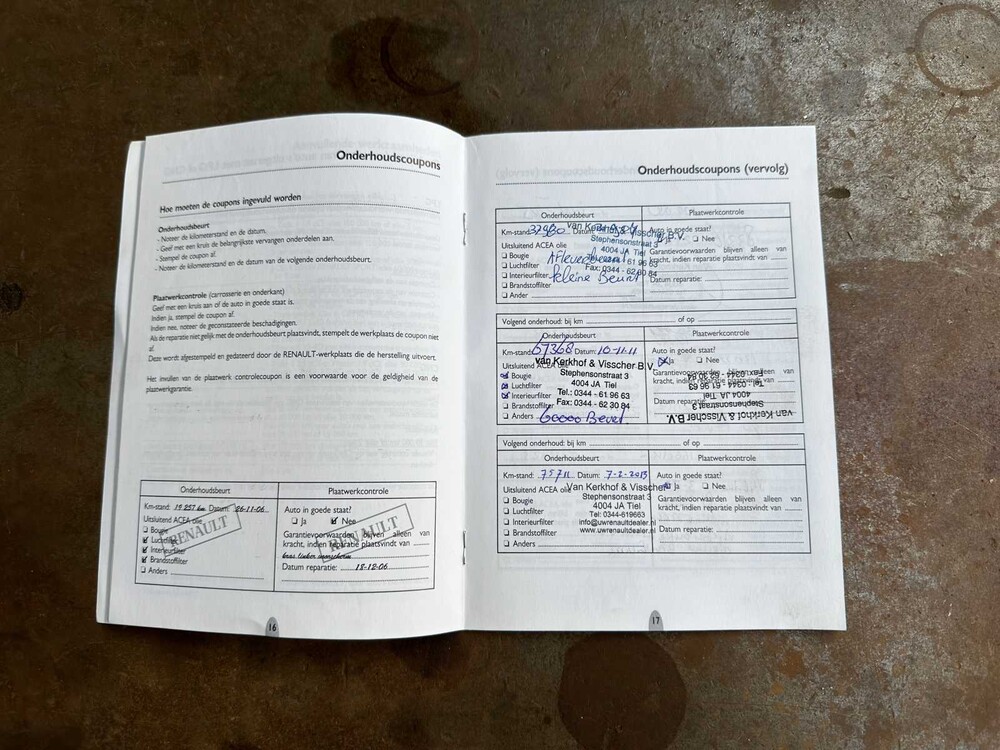 Onderhoudscoupons
Hoe moeten de coupons ingevuld worden
Onderhoudsbeurt
- Noteer de kilometerstand en de datum.
- Geef met een kruis de belangrijkste vervangen onderdelen aan.
- Stempel de coupon af.
- Noteer de kilometerstand en datum van de volgende onderhoudsbeurt.
Plaatwerkcontrole (carrosserie en onderkant)
Geef met een kruis aan of de auto in goede staat is.
Indien ja, stempel de coupon af.
Indien nee, noteer de geconstateerde beschadigingen.
Als de reparatie niet gelijk met de onderhoudsbeurt plaatsvindt, stempelt de werkplaats de coupon niet
af.
Deze wordt afgestempeld en gedateerd door de RENAULT-werkplaats die de herstelling uitvoert.
Het invullen van de plaatwerk controlecoupon is een voorwaarde voor de geldigheid van de
plaatwerkgarantie.
Onderhoudsbeurt
Km-stand: 19 257 km Datum: 26-11-06
Uitsluitend ACEA olie
Bougie
Luchtfilter
Interieurfilter
Brandstoffilter
Anders
RENAULT
Plaatwerkcontrole
Auto in goede staat?
Ja Nee
Garantievoorwaarden blijven alleen van
kracht, indien reparatie plaatsvindt van
Datum reparatie: 18-12-06
RENAULT
16
Onderhoudscoupons (vervolg)
Onderhoudsbeurt
Km-stand: Datum:
Uitsluitend ACEA olie
Bougie
Luchtfilter
Interieurfilter
Brandstoffilter
Ander
kleine Beurt
van Kerkhof & Visscher B.V.
Stephensonstraat 3
4004 JA Tiel
Fax: 0344 - 62 30 84
Plaatwerkcontrole
Auto in goede staat?
Nee
Garantievoorwaarden blijven alleen van
kracht, indien reparatie plaatsvindt van
Datum reparatie:
Volgend onderhoud: bij km of op
Onderhoudsbeurt
Km-stand: 67368 Datum: 10-11-11
Uitsluitend ACEA olie
Bougie
Luchtfilter
Interieurfilter
Brandstoffilter
Anders 60000 Beurt
van Kerkhof & Visscher B.V.
Stephensonstraat 3
4004 JA Tiel
Tel.: 0344 - 61 96 63
Fax: 0344 - 62 30 84
Plaatwerkcontrole
Auto in goede staat?
Ja Nee
Garantievoorwaarden blijven alleen van
kracht, indien reparatie plaatsvindt van
Datum reparatie
van Kerkhof & Visscher B.V.
Stephensonstraat 3
4004 JA Tiel
Tel.: 0344 - 61 96 63
Fax: 0344 - 62 30 84
Volgend onderhoud: bij km of op
Onderhoudsbeurt
Km-stand: 75711 Datum: 7-2-2013
Uitsluitend ACEA olie
Bougie
Luchtfilter
Interieurfilter
Brandstoffilter
Anders
Van Kerkhof & Visscher
Stephensonstraat 3
4004 JA Tiel
Tel: 0344-619663
info@uwrenaultdealer.nl
www.uwrenaultdealer.nl
Plaatwerkcontrole
Auto in goede staat?
Nee
Garantievoorwaarden blijven alleen van
kracht, indien reparatie plaatsvindt van
Datum reparatie:
17